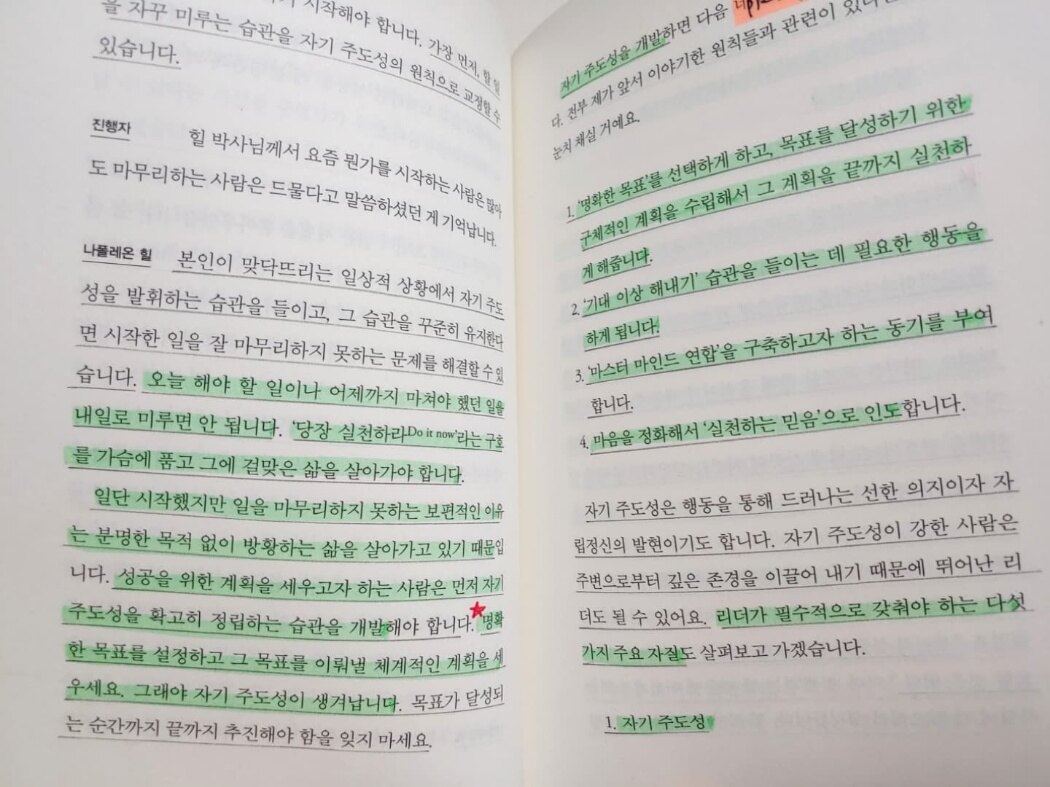 시작해야 합니다. 가장 먼저, 할 일
을 자꾸 미루는 습관을 자기 주도성의 원칙으로 교정할 수
있습니다.
진행자 힐 박사님께서 요즘 뭔가를 시작하는 사람은 많아
도 마무리하는 사람은 드물다고 말씀하셨던 게 기억납니다.
나폴레온 힐 본인이 맞닥뜨리는 일상적 상황에서 자기 주도
성을 발휘하는 습관을 들이고, 그 습관을 꾸준히 유지한다
면 시작한 일을 잘 마무리하지 못하는 문제를 해결할 수 있
습니다. 오늘 해야 할 일이나 어제까지 마쳐야 했던 일을
내일로 미루면 안 됩니다. '당장 실천하라Do it now'라는 구호
를 가슴에 품고 그에 걸맞은 삶을 살아가야 합니다.
일단 시작했지만 일을 마무리하지 못하는 보편적인 이유
는 분명한 목적 없이 방황하는 삶을 살아가고 있기 때문입
니다. 성공을 위한 계획을 세우고자 하는 사람은 먼저 자기
주도성을 확고히 정립하는 습관을 개발해야 합니다. 명확
한 목표를 설정하고 그 목표를 이뤄낼 체계적인 계획을 세
우세요. 그래야 자기 주도성이 생겨납니다. 목표가 달성되
는 순간까지 끝까지 추진해야 함을 잊지 마세요.
자기 주도성을 개발하면 다음
다. 전부 제가 앞서 이야기한 원칙들과 관련이 있다는
눈치 채실 거예요.
1. '명확한 목표'를 선택하게 하고, 목표를 달성하기 위한
구체적인 계획을 수립해서 그 계획을 끝까지 실천하
게 해줍니다.
2. '기대 이상 해내기' 습관을 들이는 데 필요한 행동을
하게 됩니다.
3. '마스터 마인드 연합'을 구축하고자 하는 동기를 부여
합니다.
4. 마음을 정화해서 '실천하는 믿음'으로 인도합니다.
자기 주도성은 행동을 통해 드러나는 선한 의지이자 자
립정신의 발현이기도 합니다. 자기 주도성이 강한 사람은
주변으로부터 깊은 존경을 이끌어 내기 때문에 뛰어난 리
더도 될 수 있어요. 리더가 필수적으로 갖춰야 하는 다섯
가지 주요 자질도 살펴보고 가겠습니다.
1. 자기 주도성